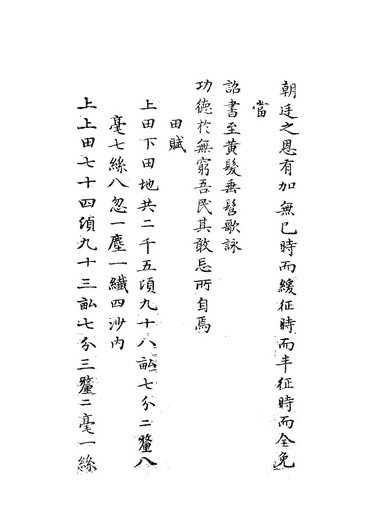 朝廷之恩有加無已時而緩征時而半征時而全免
當
詔書至黃髮垂髫歌詠
功德於無窮吾民其敢忘所自焉
田賦
上田下田地共二千五頃九十八畝七分二釐八
毫七絲八忽一塵一纖四沙內
上上田七十四頃九十三畝七分三釐二毫一絲